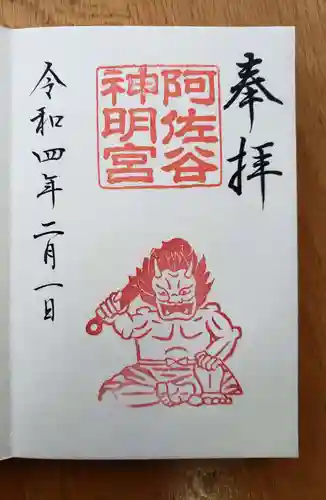 奉拝
阿佐谷
神明宮
令和四年二月一日